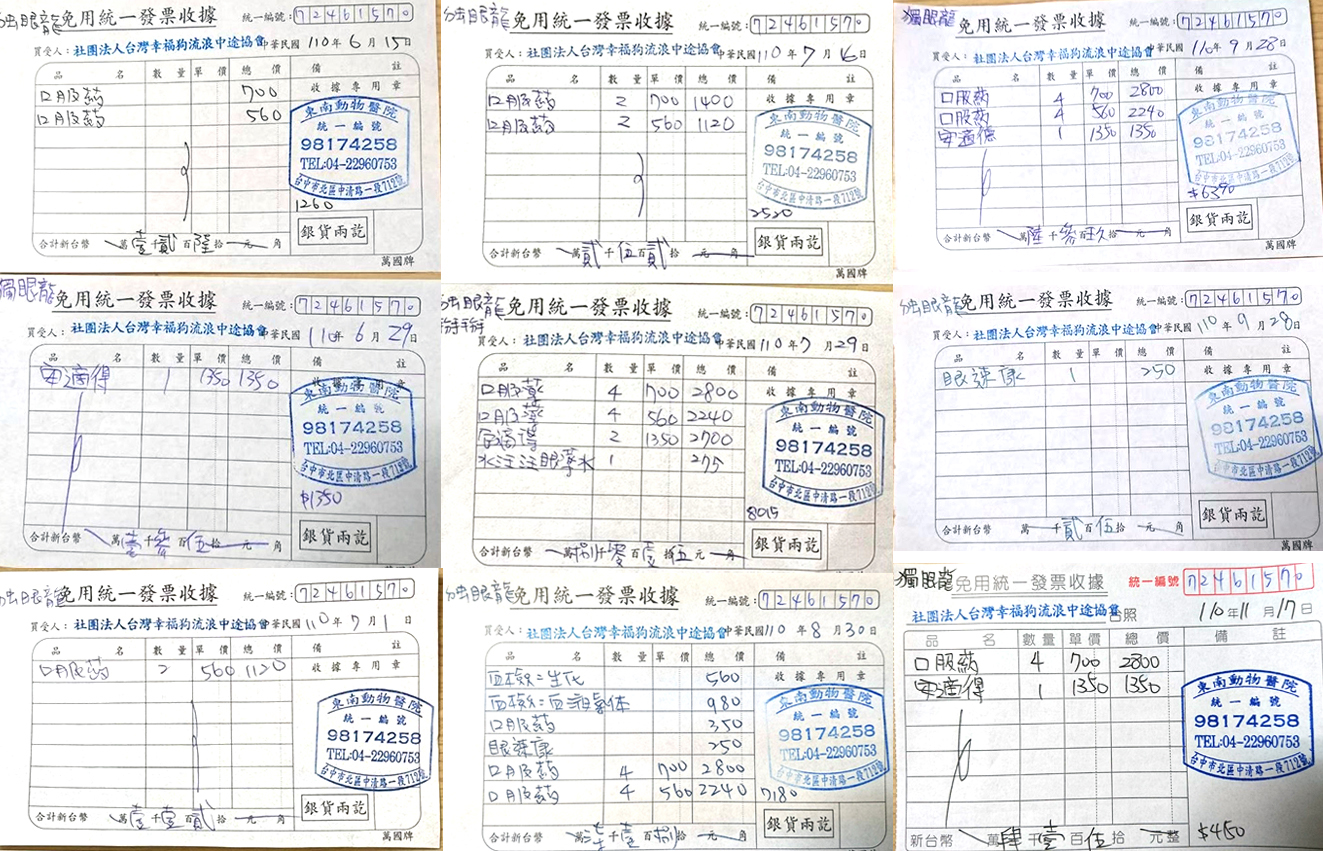 獨眼龍 免用統一發票收據 統一編號：72461570
買受人：社團法人台灣幸福狗流浪中途協會 中華民國 110年 6月 15日
品名 數量 單價 總價 備註
口服葯 700 收據專用章
口服葯 560
東南動物醫院
統一編號
98174258
TEL:04-22960753
台中市北區中清路一段712號
1260
銀貨兩訖
合計新台幣 萬壹千貳百陸拾元角
萬國牌
獨眼龍 免用統一發票收據 統一編號：72461570
買受人：社團法人台灣幸福狗流浪中途協會 中華民國 110年 7月 16日
品名 數量 單價 總價 備註
口服葯 2 700 1400 收據專用章
口服葯 2 560 1120
東南動物醫院
統一編號
98174258
TEL:04-22960753
台中市北區中清路一段712號
2520
銀貨兩訖
合計新台幣 萬貳千伍百貳拾元角
萬國牌
獨眼龍 免用統一發票收據 統一編號：72461570
買受人：社團法人台灣幸福狗流浪中途協會 中華民國 110年 9月 28日
品名 數量 單價 總價 備註
口服葯 4 700 2800 收據專用章
口服葯 4 560 2240
安適德 1 1350 1350
東南動物醫院
統一編號
98174258
TEL:04-22960753
台中市北區中清路一段712號
$6390
銀貨兩訖
合計新台幣 萬陸千參百玖拾元角
萬國牌
獨眼龍 免用統一發票收據 統一編號：72461570
買受人：社團法人台灣幸福狗流浪中途協會 中華民國 110年 6月 29日
品名 數量 單價 總價 備註
安適得 1 1350 1350 收據專用章
東南動物醫院
統一編號
98174258
TEL:04-22960753
台中市北區中清路一段712號
$1350
銀貨兩訖
合計新台幣 萬壹千參百伍拾元角
獨眼龍 免用統一發票收據 統一編號：72461570
買受人：社團法人台灣幸福狗流浪中途協會 中華民國 110年 7月 29日
品名 數量 單價 總價 備註
口服藥 4 700 2800 收據專用章
口服藥 4 560 2240
安適得 2 1350 2700
水汪汪眼藥水 1 275
東南動物醫院
統一編號
98174258
TEL:04-22960753
台中市北區中清路一段712號
8015
銀貨兩訖
合計新台幣 萬捌千零百壹拾伍元角
獨眼龍 免用統一發票收據 統一編號：72461570
買受人：社團法人台灣幸福狗流浪中途協會 中華民國 110年 9月 28日
品名 數量 單價 總價 備註
眼速康 1 250 收據專用章
東南動物醫院
統一編號
98174258
TEL:04-22960753
台中市北區中清路一段712號
銀貨兩訖
合計新台幣 萬千貳百伍拾元角
萬國牌
獨眼龍 免用統一發票收據 統一編號：72461570
買受人：社團法人台灣幸福狗流浪中途協會 中華民國 110年 7月 1日
品名 數量 單價 總價 備註
口服葯 2 560 1120 收據專用章
東南動物醫院
統一編號
98174258
TEL:04-22960753
台中市北區中清路一段712號
銀貨兩訖
合計新台幣 萬壹千壹百貳拾元角
萬國牌
獨眼龍 免用統一發票收據 統一編號：72461570
買受人：社團法人台灣幸福狗流浪中途協會 中華民國 110年 8月 30日
品名 數量 單價 總價 備註
血檢：生化 560 收據專用章
血檢：血液氣体 980
口服葯 350
眼速康 250
口服葯 4 700 2800
口服葯 4 560 2240 7180
東南動物醫院
統一編號
98174258
TEL:04-22960753
台中市北區中清路一段712號
銀貨兩訖
合計新台幣 萬柒千壹百捌拾元角
萬國牌
獨眼龍 免用統一發票收據 統一編號 72461570
社團法人台灣幸福狗流浪中途協會 台照 110年11月17日
品名 數量 單價 總價 備註
口服葯 4 700 2800
安適得 1 1350 1350
東南動物醫院
統一編號
98174258
TEL:04-22960753
台中市北區中清路一段712號
$4150
新台幣 萬肆千壹百伍拾元整